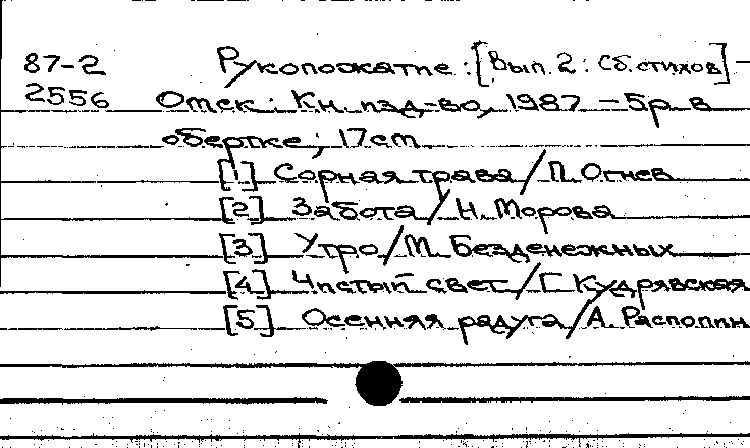 87-2 Рукопожатие : [Вып. 2 : Сб. стихов] –
2556 Омск : Кн. изд-во, 1987 – 5р. в
обертке ; 17 см
[1] Сорная трава / П. Огнев
[2] Забота / Н. Морова
[3] Утро / М. Безденежных
[4] Чистый свет / Г. Кудрявская
[5] Осенняя радуга / А. Располин